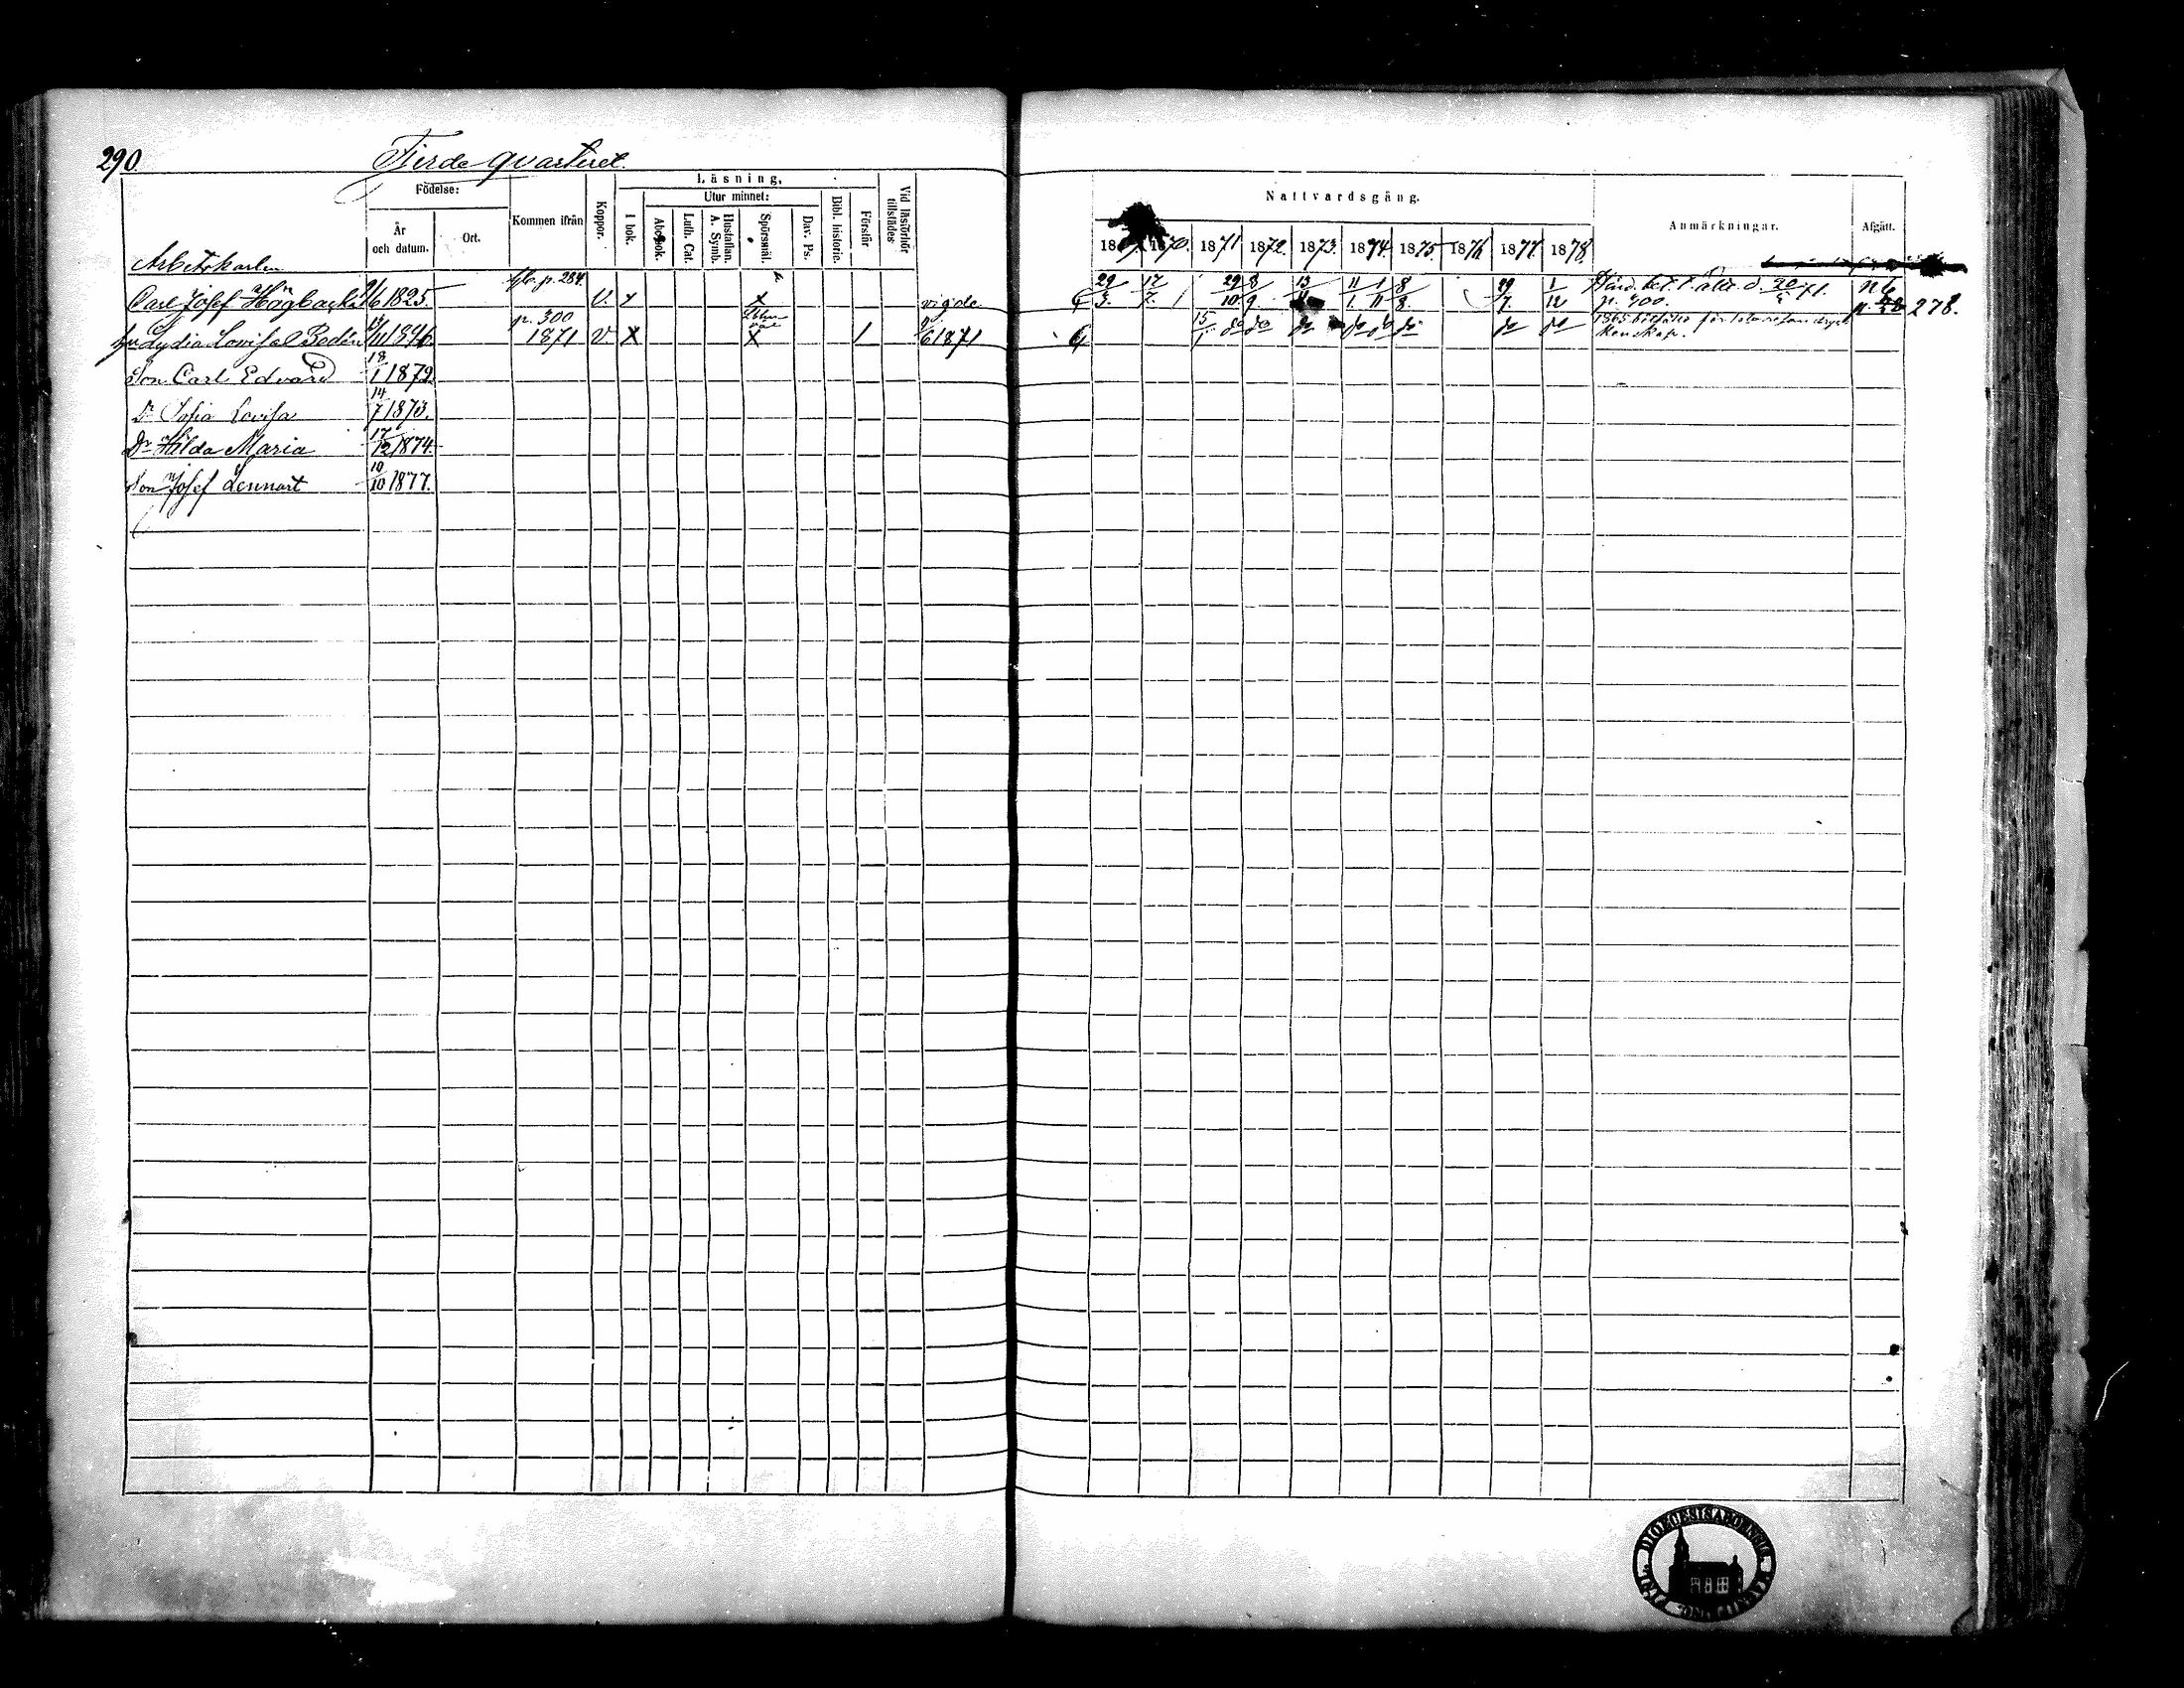 290.
Fjerde quarteret.
Födelse:
År och datum.
Ort.
Kommen ifrån
Koppor.
Läsning,
I bok.
Utur minnet:
Abcbok.
Luth. Cat.
Hustaflan. A. Symb.
Spörsmål.
Dav. Ps.
Bibl. historie.
Förstår
Vid läsförhör tillstädes
Nattvardsgång.
1870. 1871 1872. 1873. 1874. 1875. 1876 1877. 1878.
Anmärkningar.
Afgått.
Arbetskarlen
Carl Josef Högbacka 6 1825. p. 284. V. vigde 29/3. 17/7. 29/10 8/9. 13 11/1. 1/11 8/8. 29/7. 1/12 p. 400. 278.
Lydia Lovisa 1846 p. 300 1871 V X X 1 6 1871 15/1 do do do do do do do do
Son Carl Edvard 18/1 1872.
Dr Sofia Lovisa 14/7 1873.
Dr Hilda Maria 17/12 1874.
Son Josef Lennart 10/10 1877.